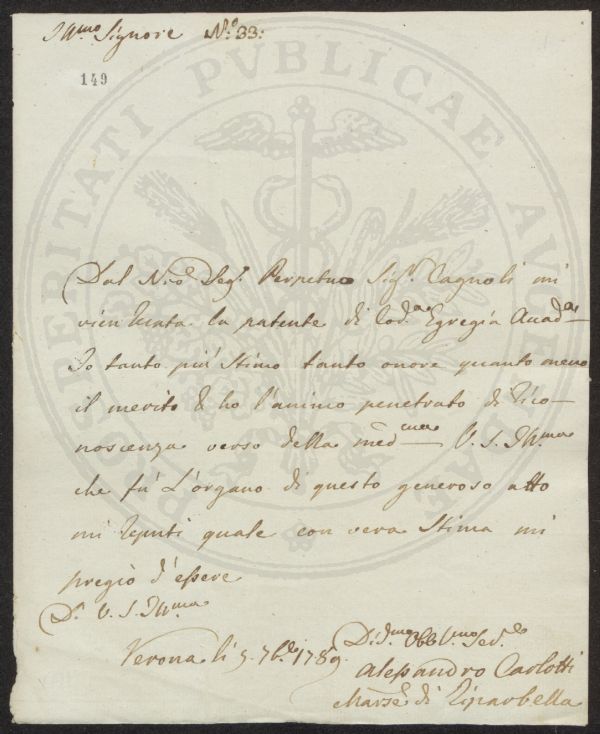 Illmo Signore No: 33:
149
PROSPERITATI PVBLICAE AVGENDAE
Dal Nro Segr. Perpetuo Sigr. Cagnoli mi
vien data la patente di Codta Egregia Accad.a
Io tanto più stimo tanto onore quanto meno
il merito & ho l'animo penetrato di rico-
noscenza verso della medma V. S. Illma
che fù L'organo di questo generoso atto
mi reputi quale con vera stima mi
pregio d'essere
Di V. S. Illma
Verona li 5. 7bre 1789.
Obblmo Serv.e
Alessandro Carlotti
Marse di Riparbella